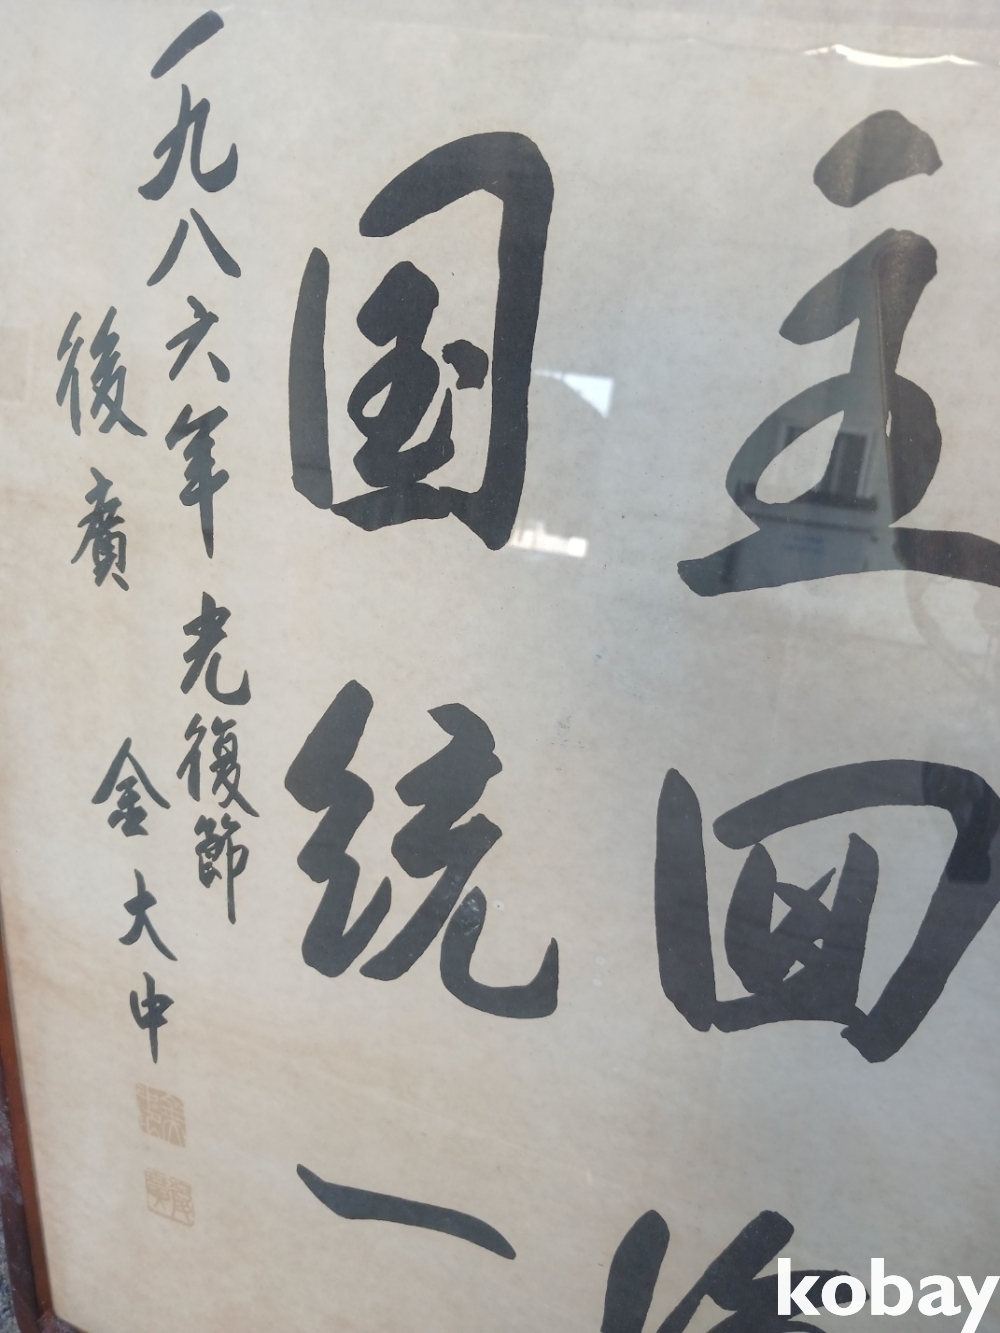 主回
国統一
一九八六年 光復節
後廣 金大中
kobay